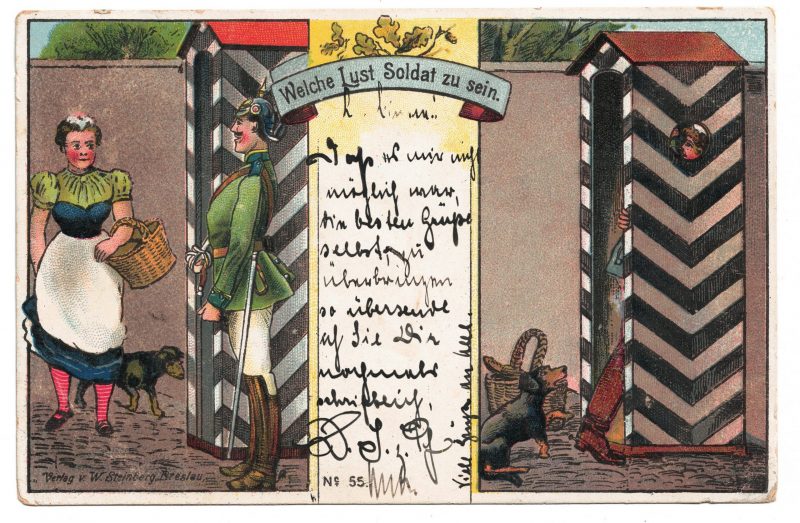 Welche Lust Soldat zu sein.
Daß es mir nicht
möglich war,
die besten Grüße
selbst, zu
überbringen
so übersende
ich Sie Die
nochmals
schriftlich,
Viele
No 55.
Verlag v. W. Steinberg, Breslau.